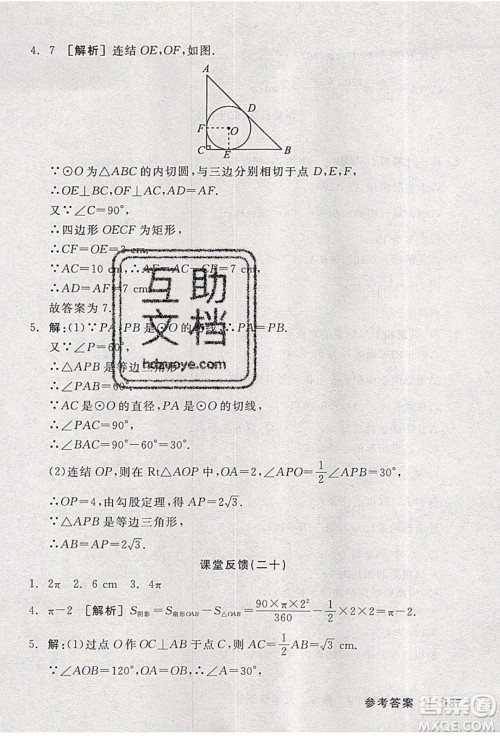 4. 7 [解析] 连结 OE,OF,如图.
A
D
F
O
C
E
B
∵⊙O 为△ABC 的内切圆,与三边分别相切于点 D,E,F,
∴OE⊥BC,OF⊥AC,AD=AF.
又∵∠C=90°,
∴四边形 OECF 为矩形,
∴CF=OE=3 cm,
∵AC=10 cm,∴AF=AC-CF=7 cm,
∴AD=AF=7 cm.
故答案为 7.
5. 解:(1)∵PA,PB 是⊙O 的切线,∴PA=PB.
又∵∠P=60°,
∴△APB 是等边三角形,
∴∠PAB=60°.
∵AC 是⊙O 的直径,PA 是⊙O 的切线,
∴∠PAC=90°,
∴∠BAC=90°-60°=30°.
(2)连结 OP,则在 Rt△AOP 中,OA=2,∠APO=1/2∠APB=30°,
∴OP=4,由勾股定理,得 AP=2√3.
∵△APB 是等边三角形,
∴AB=AP=2√3.
课堂反馈(二十)
1. 2π 2. 6 cm 3. 4π
4. π-2 [解析] S阴影=S扇形OAB-S△AOB=90×π×2²/360-1/2×2×2=π-2.
5. 解:(1)过点 O 作 OC⊥AB 于点 C,则 AC=1/2AB=√3.
∵∠AOB=120°,OA=OB,∴∠A=30°.
参考答案
互助
文档
hdzuoye.com